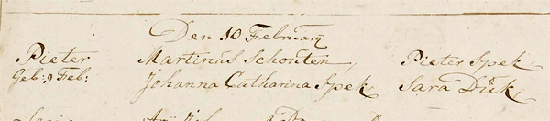 Den 10 Februarij
Pieter Martinus Schouten, Pieter Spek
Geb: 9 Feb: Johanna Catharina Spek Sara Duk